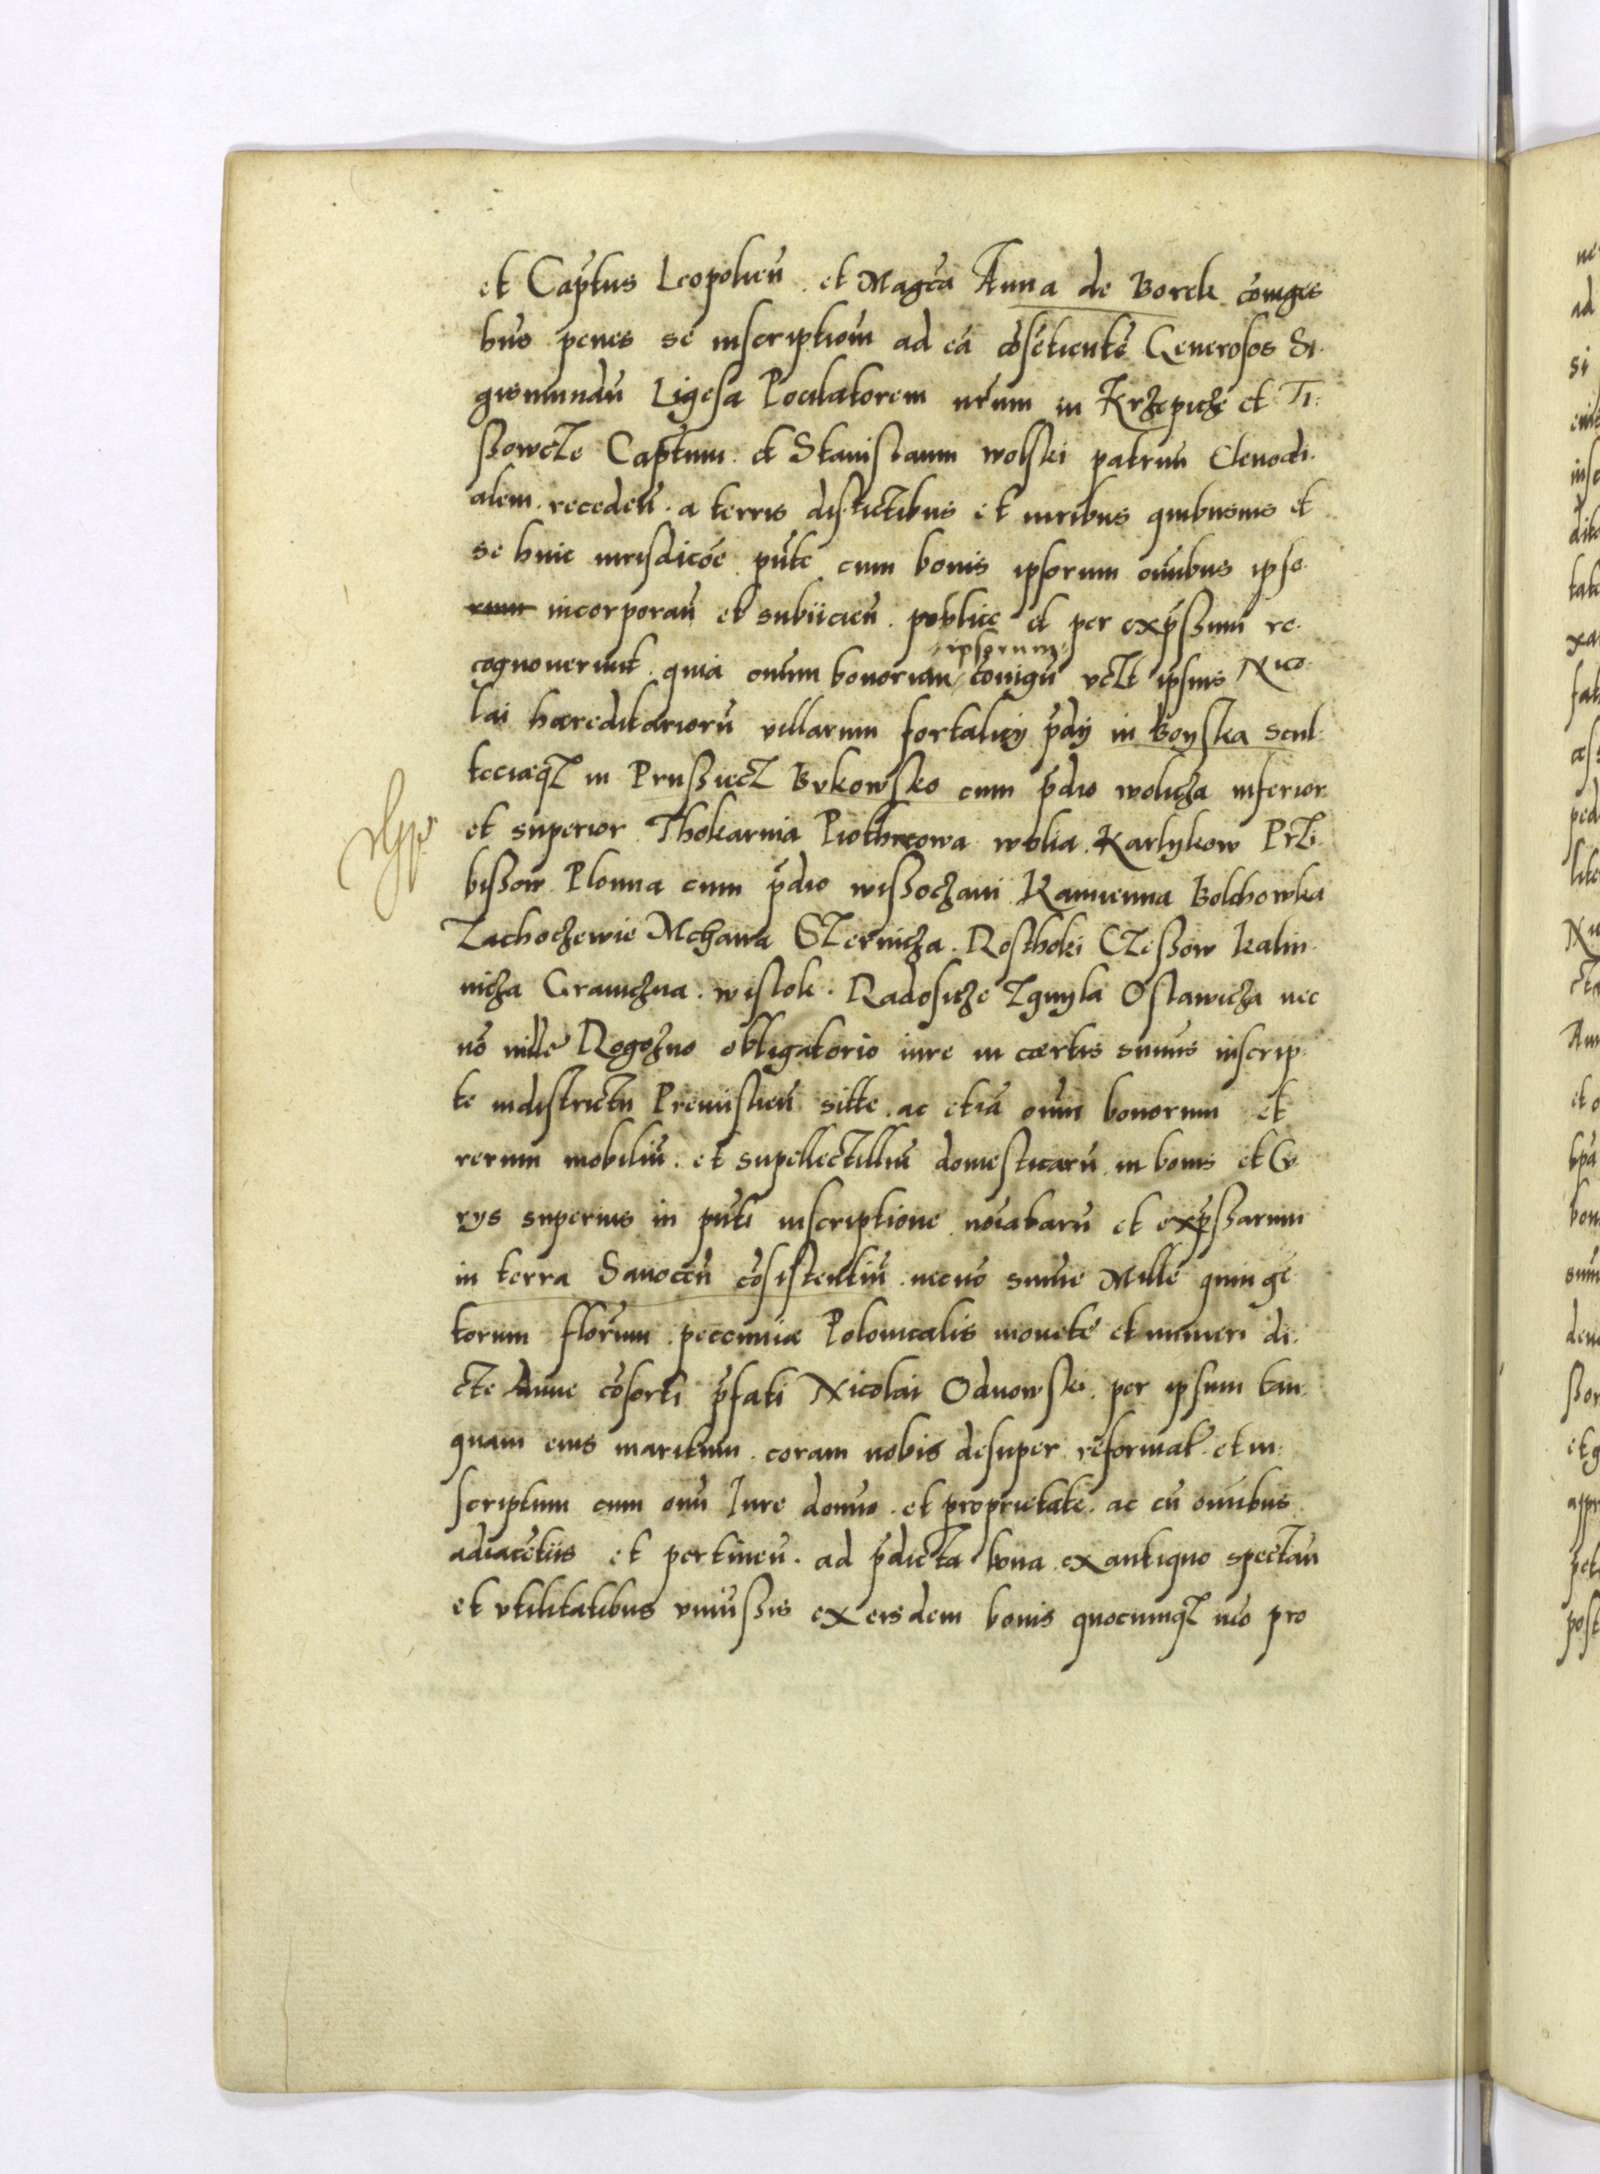 et Capt̃us Leopolień. et Magca Anna de Borek cõiuges
hns̃ penes se inscriptioni ad eã cõsẽtientẽ Generosos Si.
gismundũ Ligesa Pocilatorem nr̃um in Krzepicze et Ti.
ssowcze Capt̃um. et Stanislaum wolski patruũ Clenodi.
alem. recedeñ. a terris distictibus et iuribus quibusuis et
se huic iurisdicõe pñte cum bonis ipsorum om̃ibus ipso.
rum incorporañ et subiicieñ. publice et per exp̃ssum re.
cognouerunt. quia om̃ium bonorum ipsorum coniugũ vclt ipsius Nico
lai hæreditariorũ villarum fortalicij p̃dij in Boyska scul
teciæqz in Prussiecz Bukowsko cum p̃dio wolicza inferior
et superior Thokarnia Piothrcowa wolia. Karlykow Prz.
bissow. Plonna cum p̃dio wissoczani Kamienna Bolchowka
Zachoczewie Mchawa Szernicza. Rosthoki Czessow kalin.
nicza Graniczna. wislok. Radosicze Zgnyla Oslawicza nec
nõ ville Rogozno obligatorio iure in cærtis sum̃is inscrip.
te indistrictu Premislień sitte. ac etiã om̃i bonorum et
rerum mobiliũ. et supellectilliũ domesticarũ in bonis et Cu
rys superius in pñti inscriptione noĩatarũ et exp̃ssarum
in terra Sanoceñ cõsistentiũ. necnõ sum̃e Mille quingẽ
torum florũm. peccuniæ Polonicalis monetẽ et numeri di.
cte Anne cõsorti p̃fati Nicolai Odnowski. per ipsum tan
quam eius maritum. coram nobis desuper reformat. et in.
scriptum cum om̃i Iure domio. et proprietate. ac cũ om̃ibus
adiacẽtiis et pertineñ. ad p̃dicta bona ex antiquo spectañ
et vtilitatibus vniũssis ex eisdem bonis quocumqz mõ pro